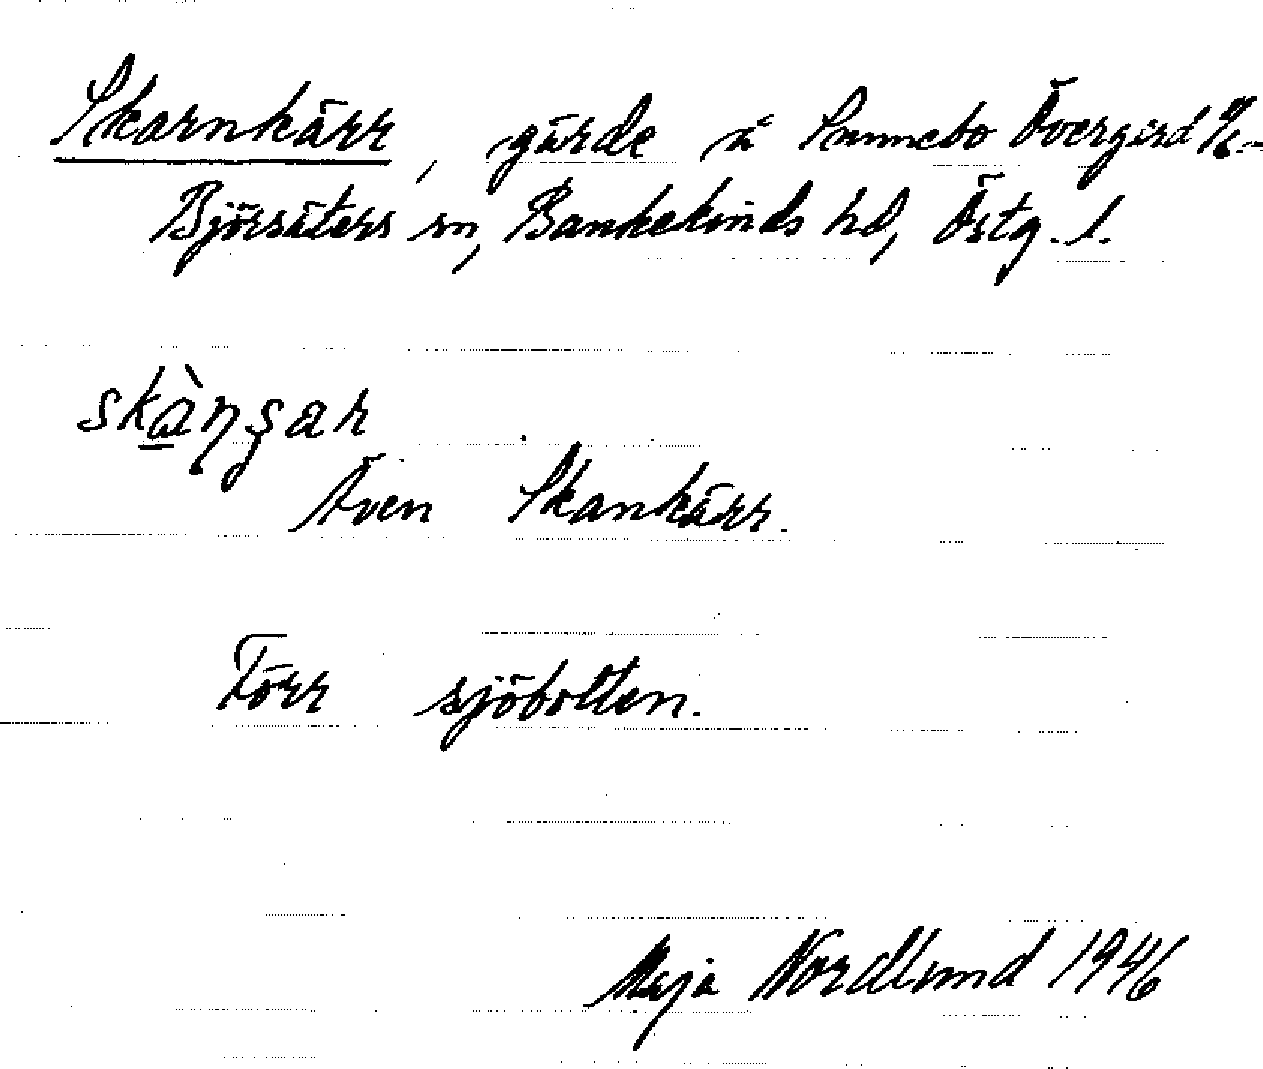 Skarnkärr, gärde å Sunnebo Övergård
Björsäters sn, Bankekinds hd, Östg. l.
Även Skankärr.
Förr sjöbotten.
Maja Nordlund 1946